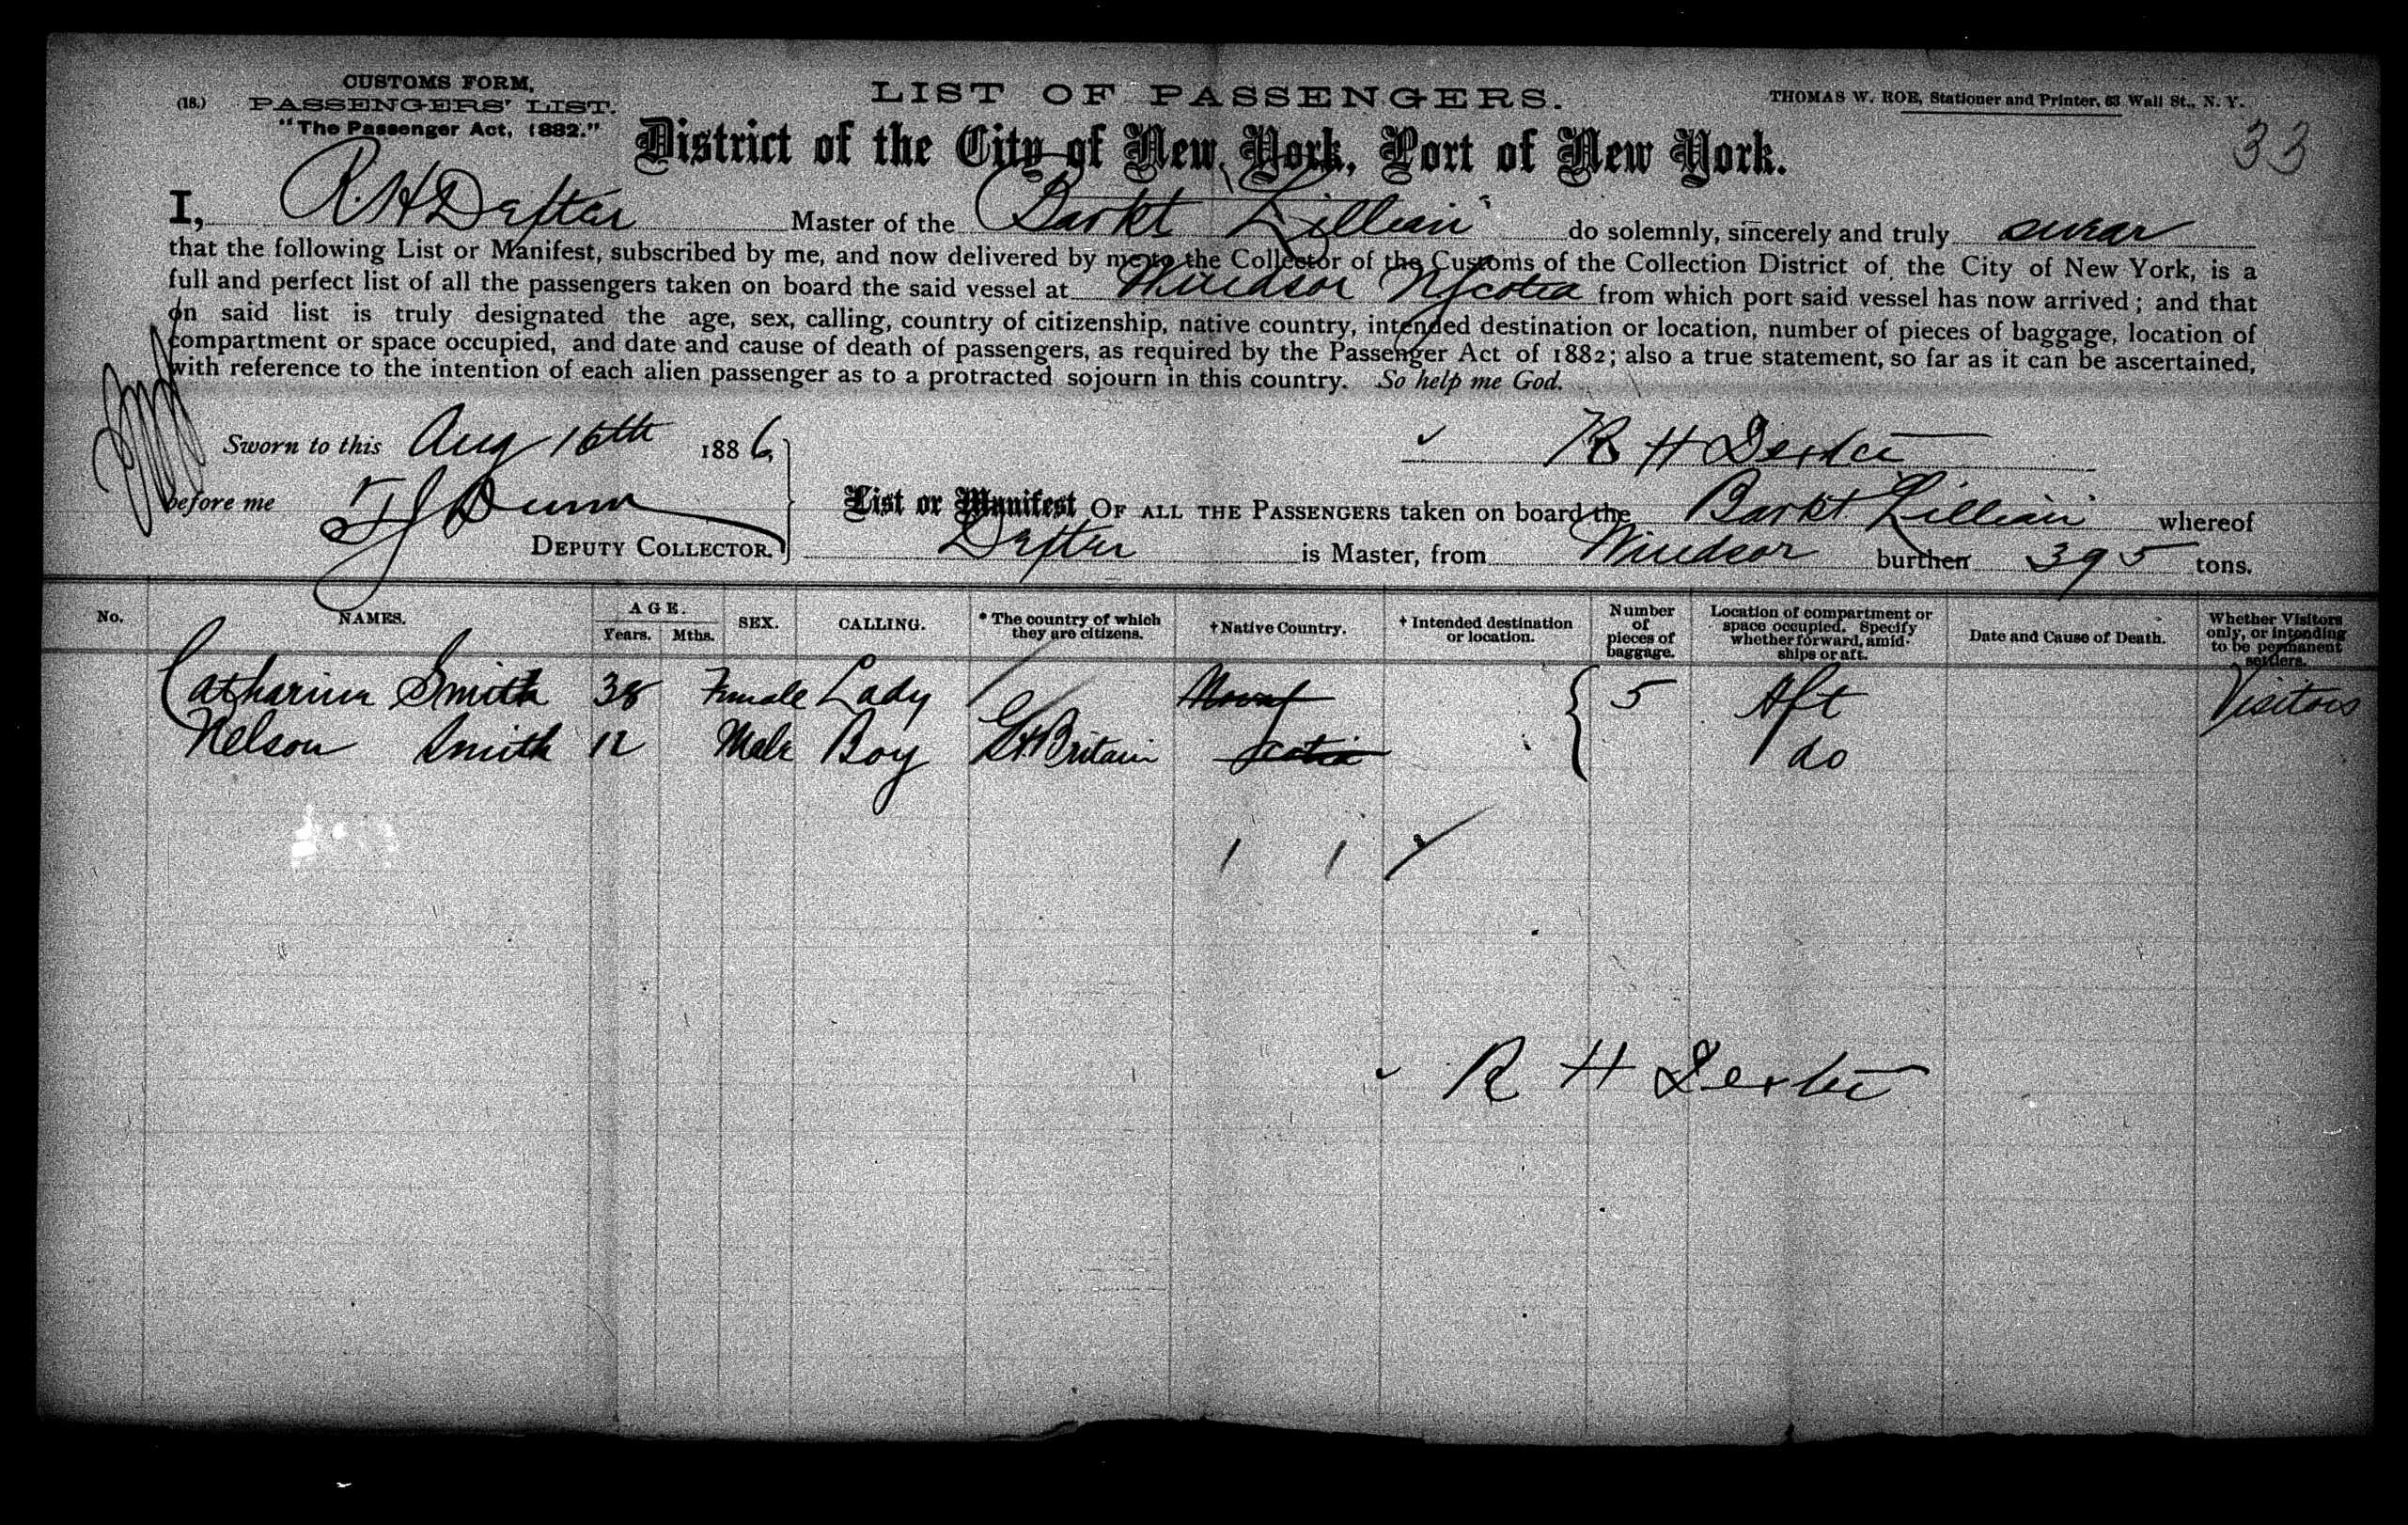 CUSTOMS FORM,
(18.) PASSENGERS' LIST.
"The Passenger Act, 1882."
LIST OF PASSENGERS.
THOMAS W. ROE, Stationer and Printer, 63 Wall St., N. Y.
33
District of the City of New York, Port of New York.
I, R. H Dexter Master of the Barkt Lillian do solemnly, sincerely and truly swear
that the following List or Manifest, subscribed by me, and now delivered by me to the Collector of the Customs of the Collection District of the City of New York, is a
full and perfect list of all the passengers taken on board the said vessel at Windsor N Scotia from which port said vessel has now arrived; and that
on said list is truly designated the age, sex, calling, country of citizenship, native country, intended destination or location, number of pieces of baggage, location of
compartment or space occupied, and date and cause of death of passengers, as required by the Passenger Act of 1882; also a true statement, so far as it can be ascertained,
with reference to the intention of each alien passenger as to a protracted sojourn in this country. So help me God.
Sworn to this Aug 16th 1886
R H Dexter
before me T J Dunn
DEPUTY COLLECTOR.
List or Manifest OF ALL THE PASSENGERS taken on board the Barkt Lillian whereof
Dexter is Master, from Windsor burthen 395 tons.
No. NAMES. AGE. Years. Mths. SEX. CALLING. * The country of which they are citizens. † Native Country. † Intended destination or location. Number of pieces of baggage. Location of compartment or space occupied. Specify whether forward, amidships or aft. Date and Cause of Death. Whether Visitors only, or intending to be permanent settlers.
Catharina Smith 38 Female Lady Nova 5 Aft Visitors
Nelson Smith 12 Male Boy Gt. Britain Scotia do
1 1
R H Dexter